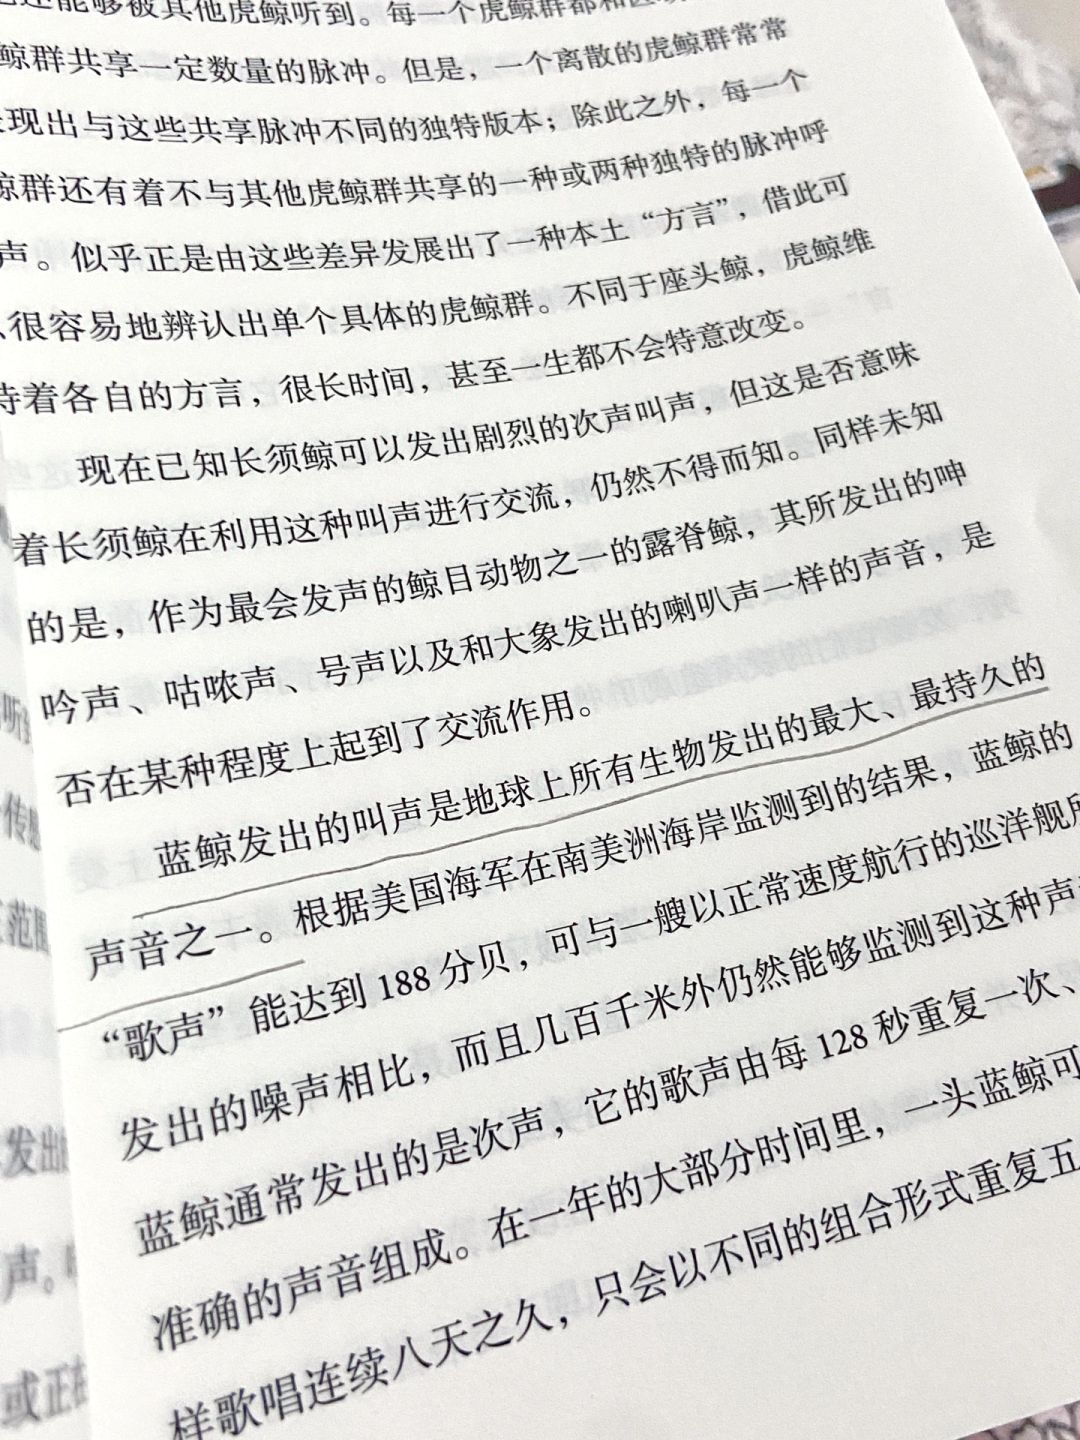 还能够被其他虎鲸听到。每一个虎鲸群都和
鲸群共享一定数量的脉冲。但是，一个离散的虎鲸群常常
现出与这些共享脉冲不同的独特版本；除此之外，每一个
鲸群还有着不与其他虎鲸群共享的一种或两种独特的脉冲呼
声。似乎正是由这些差异发展出了一种本土“方言”，借此可
很容易地辨认出单个具体的虎鲸群。不同于座头鲸，虎鲸维
持着各自的方言，很长时间，甚至一生都不会特意改变。
现在已知长须鲸可以发出剧烈的次声叫声，但这是否意味
着长须鲸在利用这种叫声进行交流，仍然不得而知。同样未知
的是，作为最会发声的鲸目动物之一的露脊鲸，其所发出的呻
吟声、咕哝声、号声以及和大象发出的喇叭声一样的声音，是
否在某种程度上起到了交流作用。
蓝鲸发出的叫声是地球上所有生物发出的最大、最持久的
声音之一。根据美国海军在南美洲海岸监测到的结果，蓝鲸的
“歌声”能达到188分贝，可与一艘以正常速度航行的巡洋舰所
发出的噪声相比，而且几百千米外仍然能够监测到这种声
蓝鲸通常发出的是次声，它的歌声由每128秒重复一次、
准确的声音组成。在一年的大部分时间里，一头蓝鲸可
样歌唱连续八天之久，只会以不同的组合形式重复五
传
范围
发出
声。
或正在